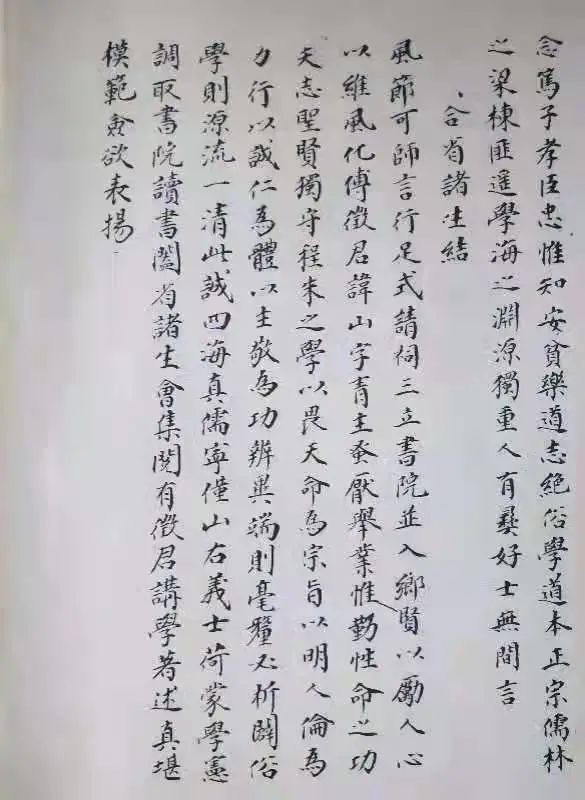 念篤子孝臣忠惟知安貧樂道志絶俗學道本正宗儒林
之梁棟匪遥學海之淵源獨重人有彝好士無間言
合省諸生結
風節可師言行足式請祠三立書院並入鄉賢以勵人心
以維風化傅徵君諱山字青主蚤厭舉業惟勤性命之功
夫志聖賢獨守程朱之學以畏天命為宗旨以明人倫為
力行以誠仁為體以主敬為功辨異端則毫釐必析闢俗
學則源流一清此誠四海真儒寧僅山右義士荷蒙學憲
調取書院讀書闔省諸生會集閱有徵君講學著述真堪
模範僉欲表揚